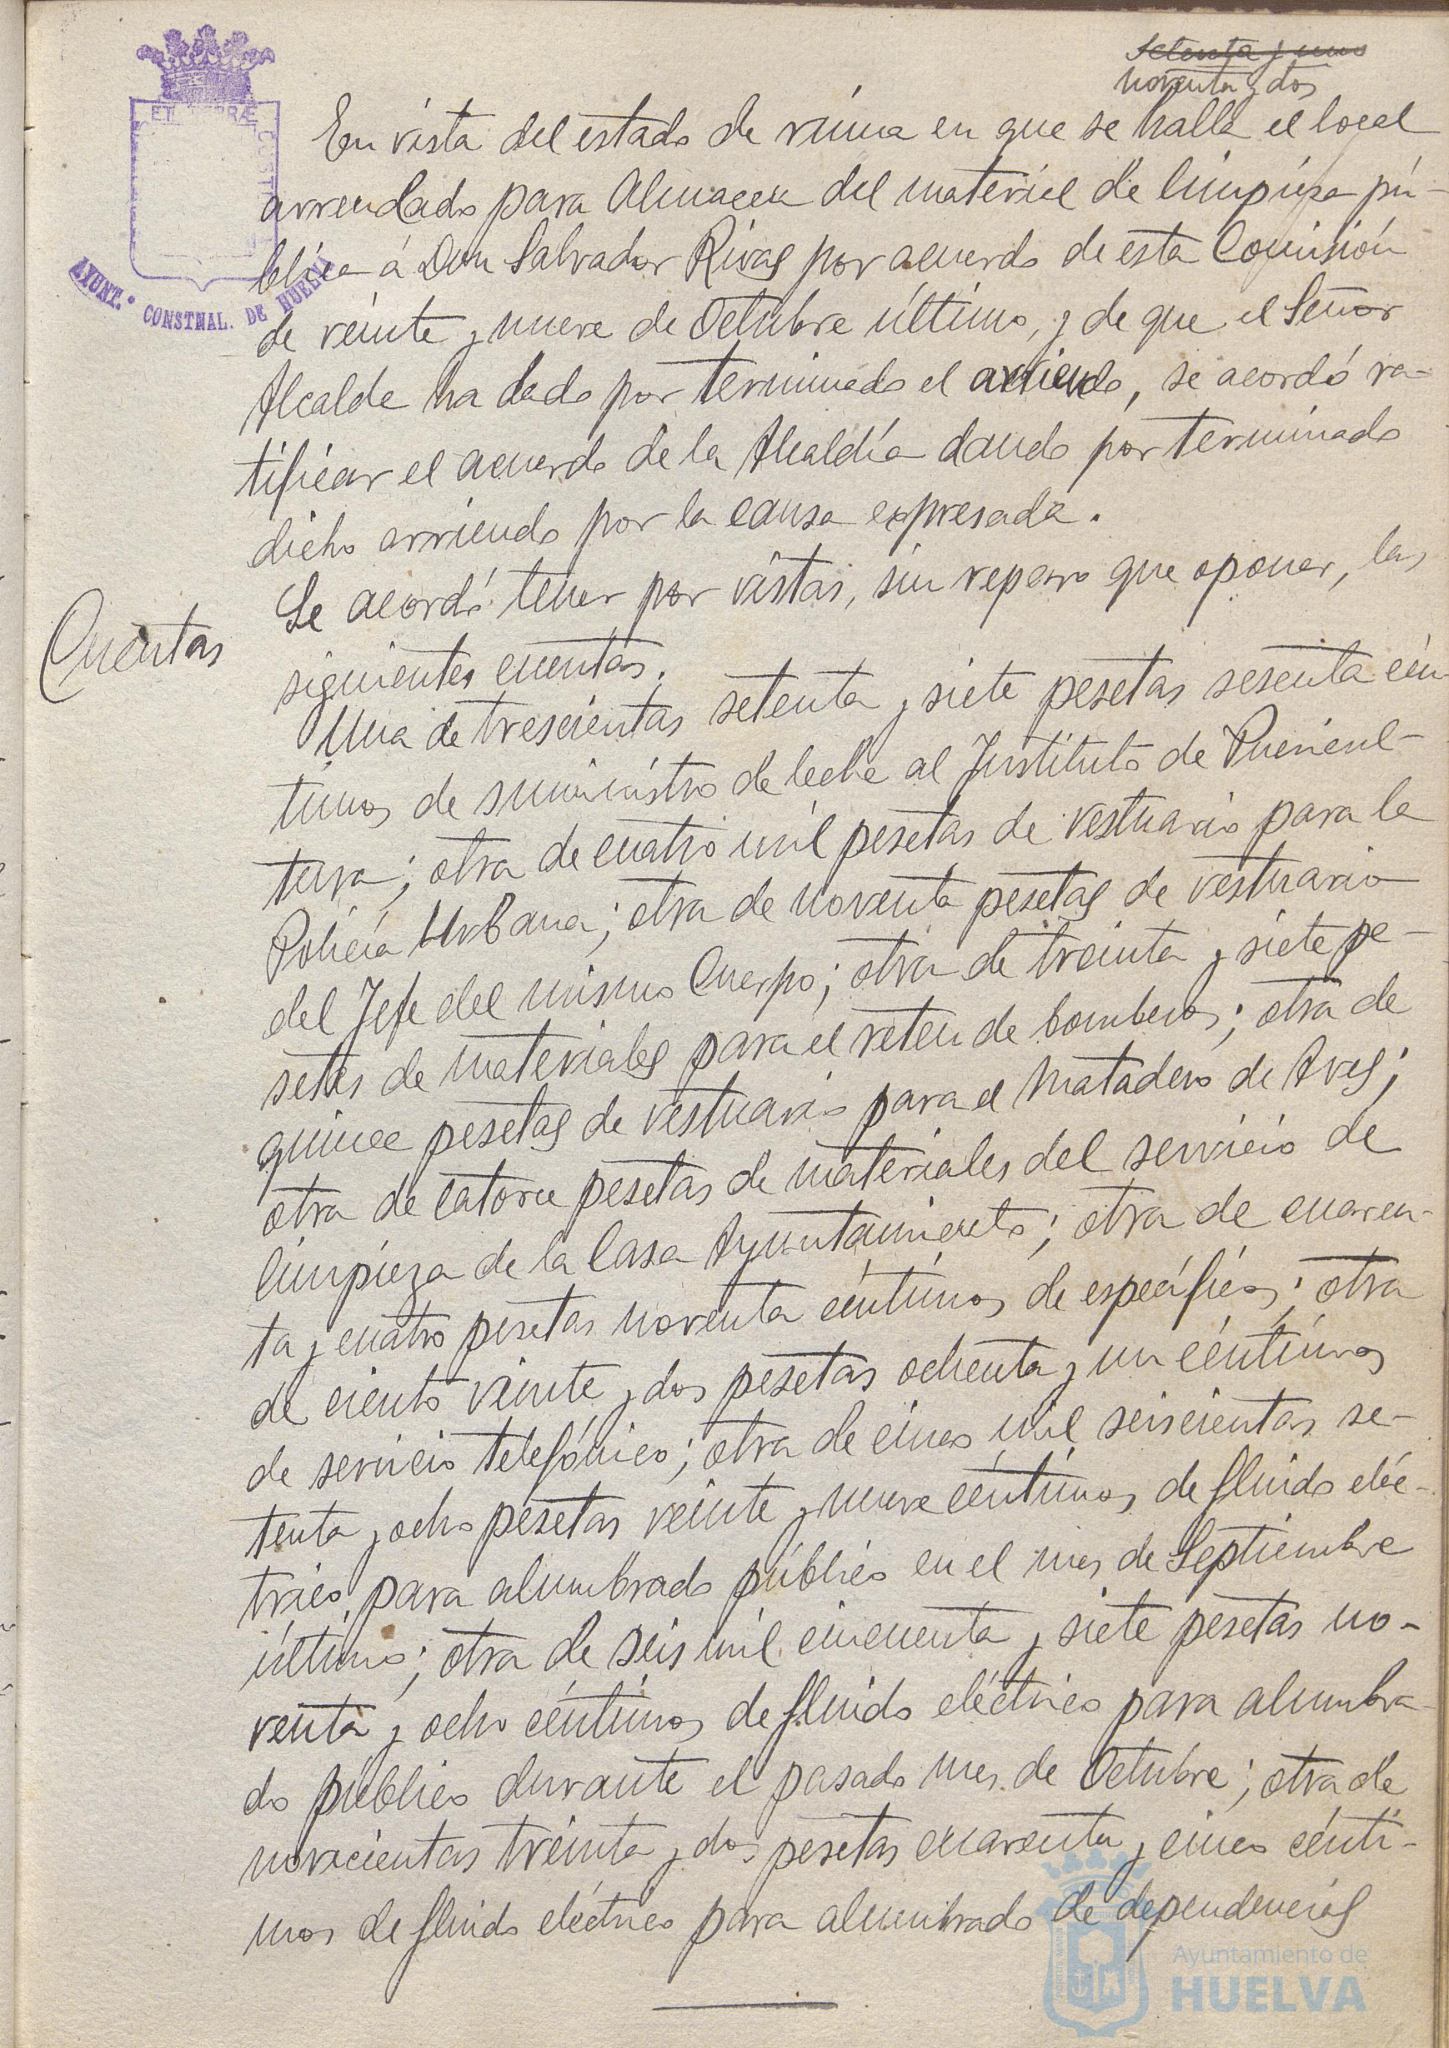 setenta y uno
noventa y dos
En vista del estado de ruina en que se halla el local
arrendado para Almacen del material de limpieza pú-
blica á Don Salvador Rivas por acuerdo de esta Comisión
de veinte y nueve de Octubre último, y de que el Señor
Alcalde ha dado por terminado el arriendo, se acordó ra-
tificar el acuerdo de la Alcaldía dando por terminado
dicho arriendo por la causa expresada.
Cuentas
Se acordó tener por vistas, sin reparo que oponer, las
siguientes cuentas.
Una de trescientas setenta y siete pesetas sesenta cén-
timos de suministro de leche al Instituto de Puericul-
tura; otra de cuatro mil pesetas de vestuario para la
Policía Urbana; otra de noventa pesetas de vestuario
del Jefe del mismo Cuerpo; otra de treinta y siete pe-
setas de materiales para el reten de bomberos; otra de
quince pesetas de vestuario para el Matadero de Aves;
otra de catorce pesetas de materiales del servicio de
limpieza de la Casa Ayuntamiento; otra de cuaren-
ta y cuatro pesetas noventa céntimos de específicos; otra
de ciento veinte y dos pesetas ochenta y un céntimos
de servicio telefónico; otra de cinco mil seiscientas se-
tenta y ocho pesetas veinte y nueve céntimos de fluido eléc-
trico para alumbrado público en el mes de Septiembre
último; otra de seis mil cincuenta y siete pesetas no-
venta y ocho céntimos de fluido eléctrico para alumbra-
do público durante el pasado mes de Octubre; otra de
novecientas treinta y dos pesetas cuarenta y cinco cénti-
mos de fluido eléctrico para alumbrado de dependencias
AYUNT.º CONSTNAL. DE HUELVA
Ayuntamiento de
HUELVA